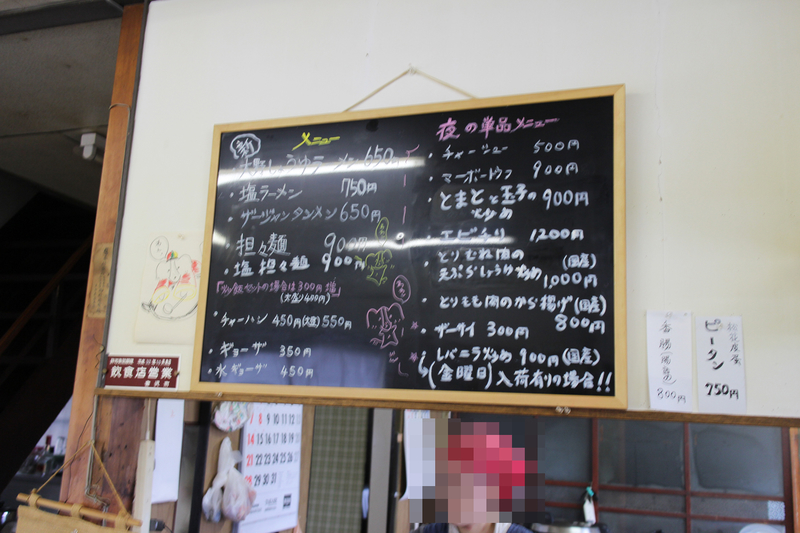 メニュー
大野しょうゆラーメン 650円
・塩ラーメン 750円
・ザージャンタンメン 650円
・担々麺 900円
・塩担々麺 900円
「炒飯セットの場合は300円増」
(大盛り400円)
・チャーハン 450円(大盛)550円
・ギョーザ 350円
・水ギョーザ 450円
夜の単品メニュー
・チャーシュー 500円
・マーボードウフ 900円
・とまとと玉子の炒め 900円
・エビチリ 1,200円
・とりむね肉の
天ぷらしょうゆ炒め (国産) 1,000円
・とりもも肉のから揚げ(国産)
800円
・ザーサイ 300円
・レバニラ炒め 900円(国産)
(金曜日)入荷有りの場合!!
飲食店営業
ピータン
750円
800円
7 8 9 10 11 12 13
14 15 16 17 18 19 20
21 22 23 24 25 26 27
28 29 30 31